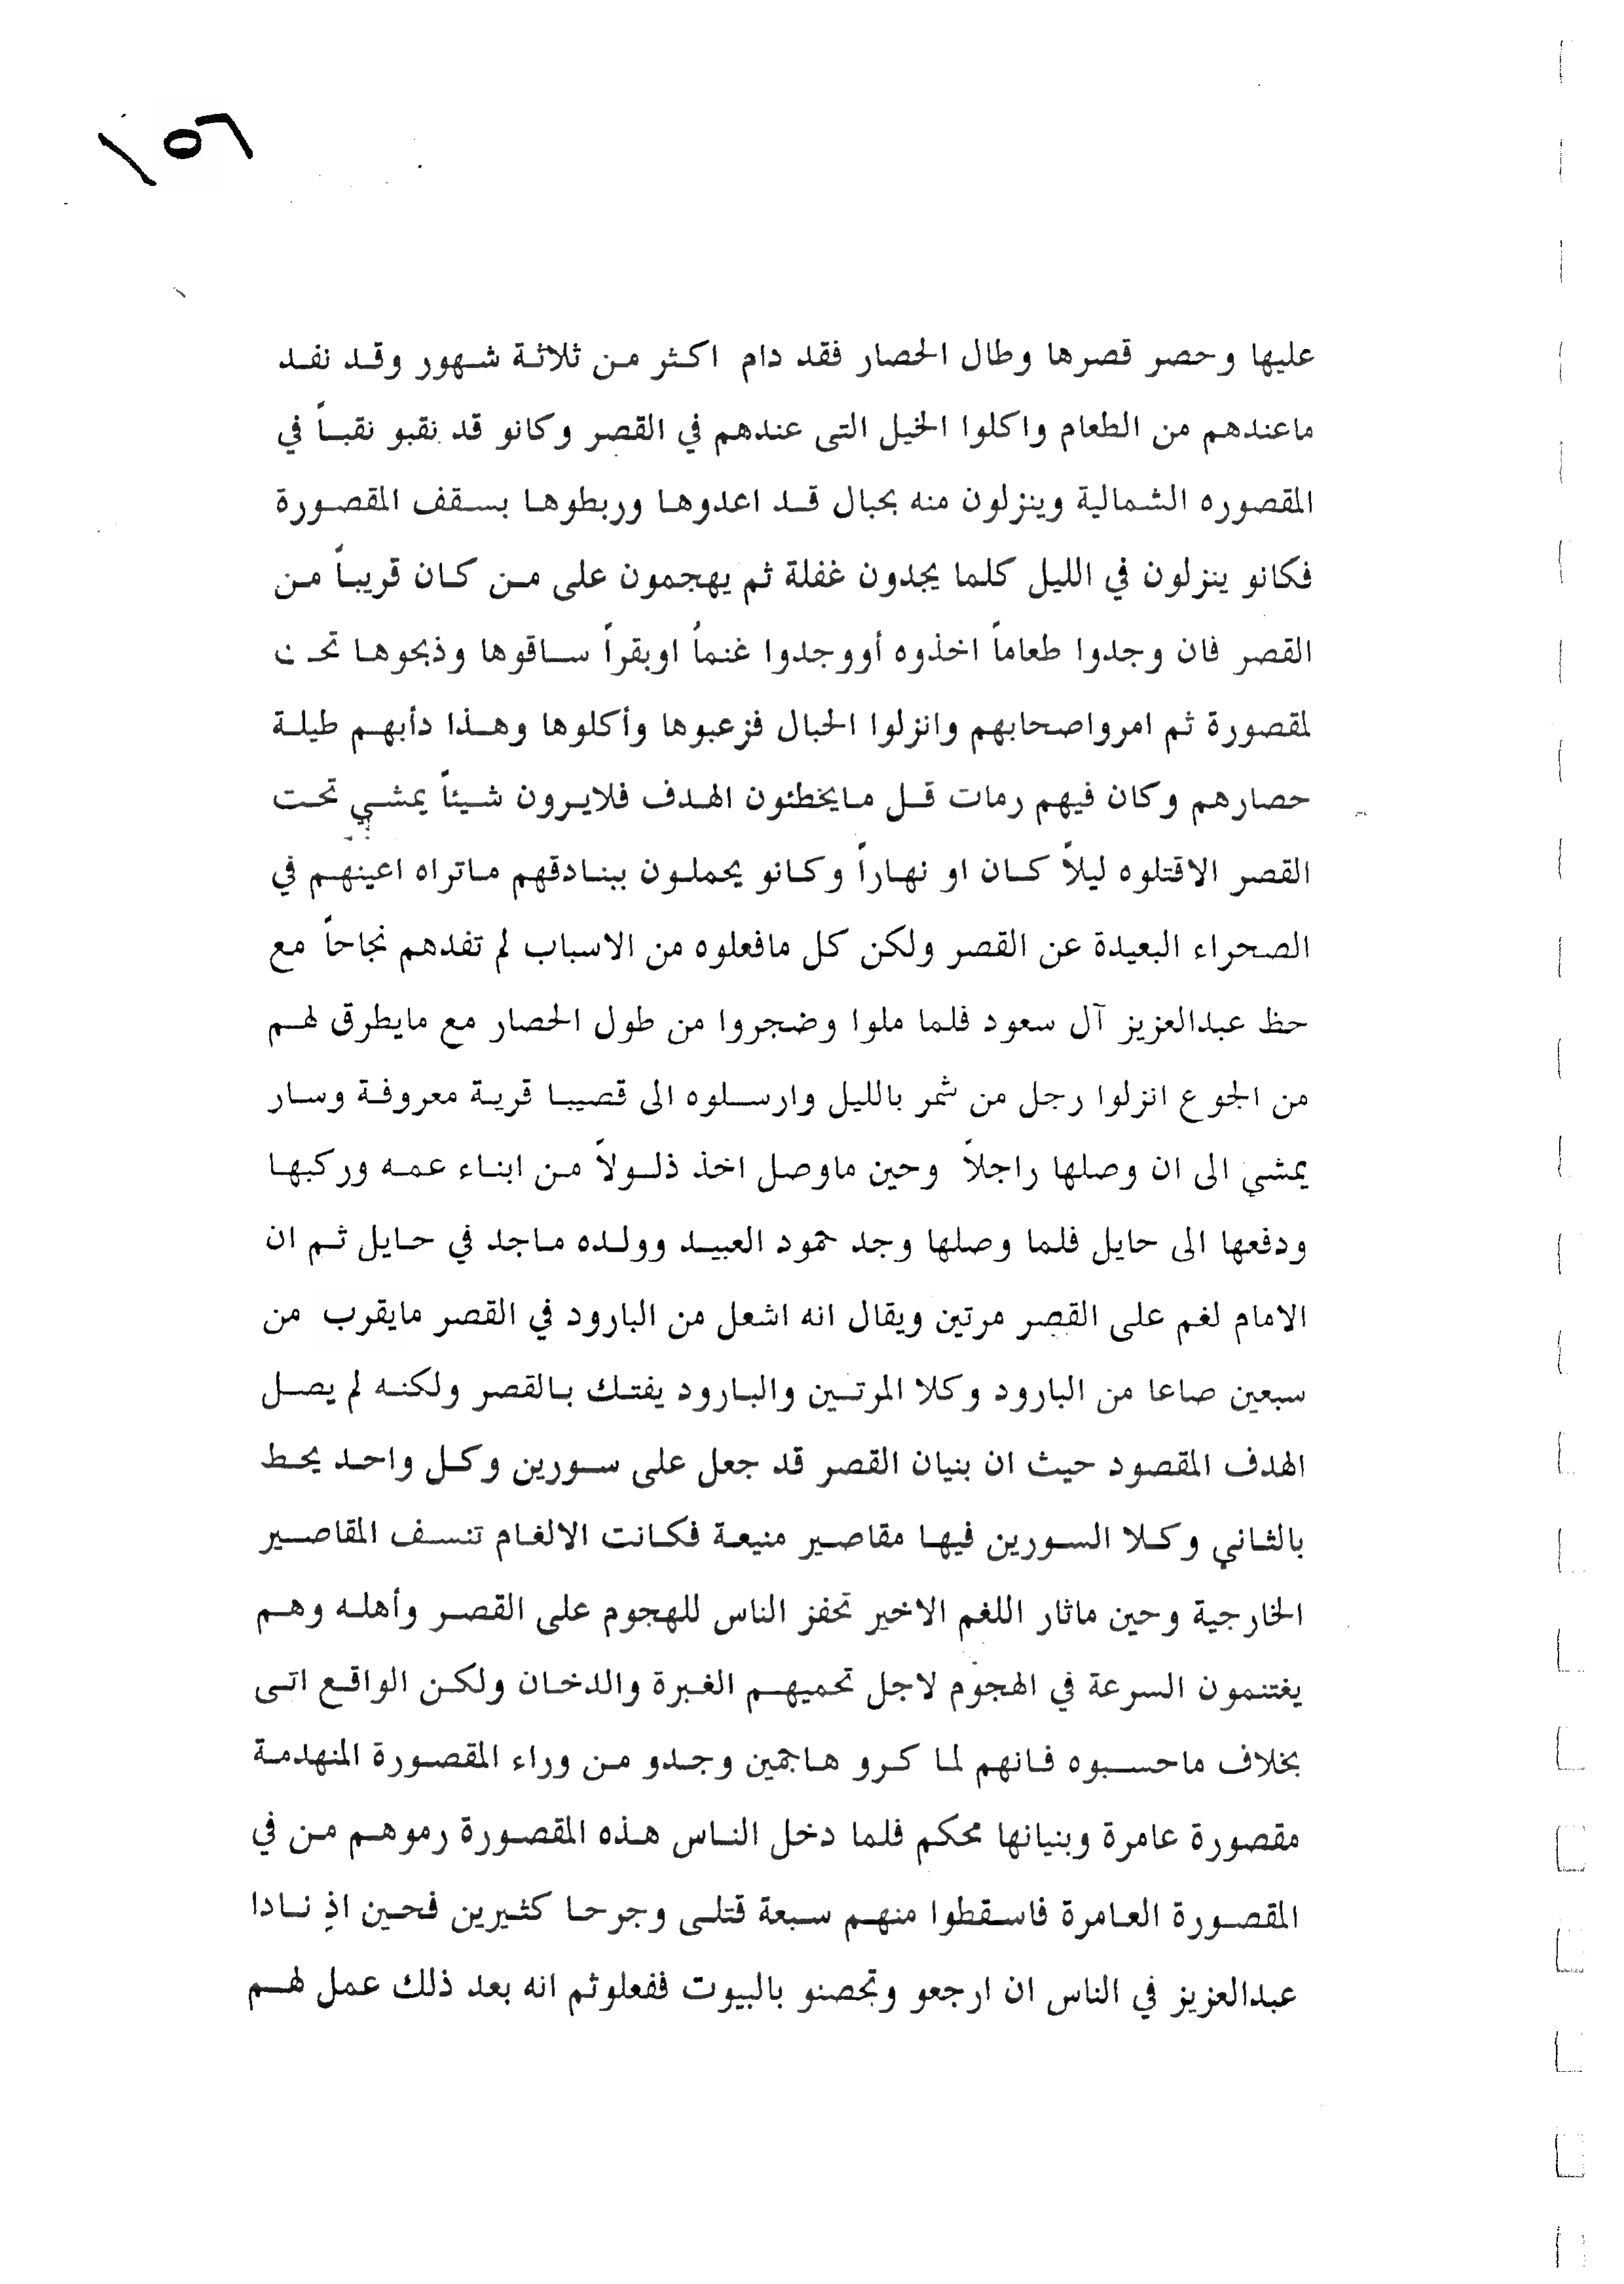 ١٥٦
عليها وحصر قصرها وطال الحصار فقد دام اكثر من ثلاثة شهور وقد نفد
ماعندهم من الطعام واكلوا الخيل التى عندهم في القصر وكانو قد نقبو نقباً في
المقصوره الشمالية وينزلون منه بحبال قد اعدوها وربطوها بسقف المقصورة
فكانو ينزلون في الليل كلما يجدون غفلة ثم يهجمون على من كان قريباً من
القصر فان وجدوا طعاماً اخذوه أووجدوا غنماً اوبقراً ساقوها وذبحوها تحت
لمقصورة ثم امرواصحابهم وانزلوا الحبال فزعبوها وأكلوها وهذا دأبهم طيلة
حصارهم وكان فيهم رمات قل مايخطئون الهدف فلايرون شيئاً يمشي تحت
القصر الاقتلوه ليلاً كان او نهاراً وكانو يحملون ببنادقهم ماتراه اعينهم في
الصحراء البعيدة عن القصر ولكن كل مافعلوه من الاسباب لم تفدهم نجاحاً مع
حظ عبدالعزيز آل سعود فلما ملوا وضجروا من طول الحصار مع مايطرق لهم
من الجوع انزلوا رجل من شمر بالليل وارسلوه الى قصيبا قرية معروفة وسار
يمشي الى ان وصلها راجلاً وحين ماوصل اخذ ذلولاً من ابناء عمه وركبها
ودفعها الى حايل فلما وصلها وجد حمود العبيد وولده ماجد في حايل ثم ان
الامام لغم على القصر مرتين ويقال انه اشعل من البارود في القصر مايقرب من
سبعين صاعا من البارود وكلا المرتين والبارود يفتك بالقصر ولكنه لم يصل
الهدف المقصود حيث ان بنيان القصر قد جعل على سورين وكل واحد يحط
بالثاني وكلا السورين فيها مقاصير منيعة فكانت الالغام تنسف المقاصير
الخارجية وحين ماثار اللغم الاخير تحفز الناس للهجوم على القصر وأهله وهم
يغتنمون السرعة في الهجوم لاجل تحميهم الغبرة والدخان ولكن الواقع اتى
بخلاف ماحسبوه فانهم لما كرو هاجمين وجدو من وراء المقصورة المنهدمة
مقصورة عامرة وبنيانها محكم فلما دخل الناس هذه المقصورة رموهم من في
المقصورة العامرة فاسقطوا منهم سبعة قتلى وجرحا كثيرين فحين اذٍ نادا
عبدالعزيز في الناس ان ارجعو وتحصنو بالبيوت ففعلوثم انه بعد ذلك عمل لهم